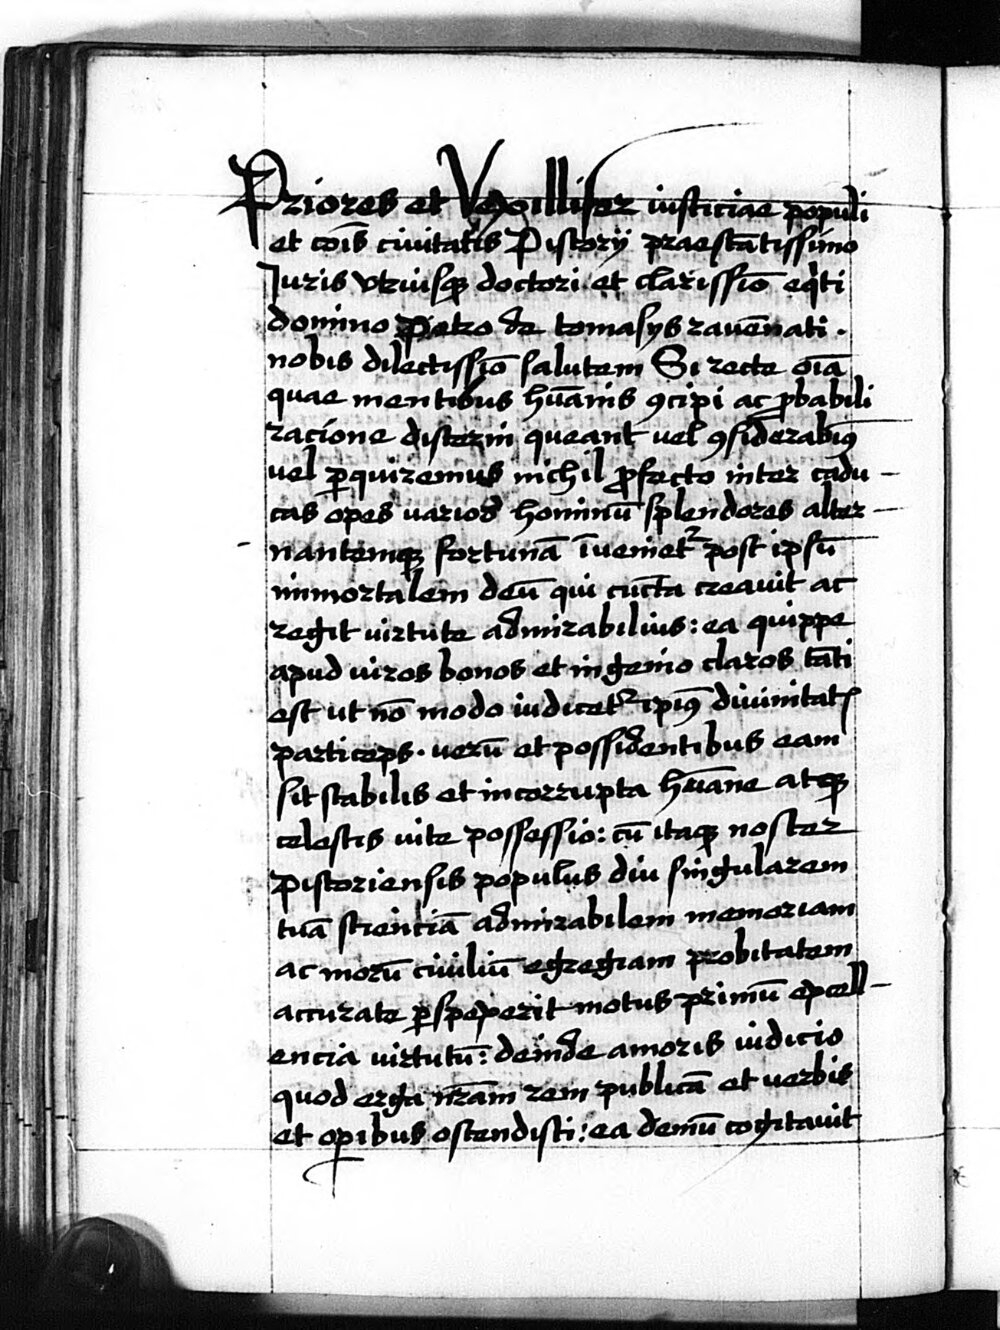 Priores et Vexillifer iusticiae populi
et cois̄ ciuitatis Pistorij praestātissimo
Iuris vtriusqꝫ doctori et clarissiō eq̇ti
domino Petro de tomasys rauēnati .
nobis dilectissiō salutem Si recte oīa
quae mentibus hūanis ꝯcipi ac ꝓbabili
racione discerni queant vel ꝯsiderabimꝰ
vel ꝑquiremus nichil ꝓfecto inter cadu –
cas opes uariosqꝫ hominū splendores alter –
nantemqꝫ fortunā īuenietʳ post ipsū
immortalem deū qui cūcta creauit ac
regit uirtute admirabilius : ea quippe
apud uiros bonos et ingenio claros tāti
est ut nō modo iudicetʳ ipiꝰ̄ diuinitatꝭ
particeps . uerū et possidentibus eam
sit stabilis et incorrupta hūane atqꝫ
celestis uite possessio : cū itaqꝫ noster
Pistoriensis populus diu singularem
tuā scientiā admirabilem memoriam
ac morū ciuiliū egregiam probitatem
accurate ꝑspexerit motus primū excell –
encia uirtutū : deinde amoris iudicio
quod erga nr̄am rem publicā et uerbis
et oꝑibus ostendisti : ea demū cogitauit